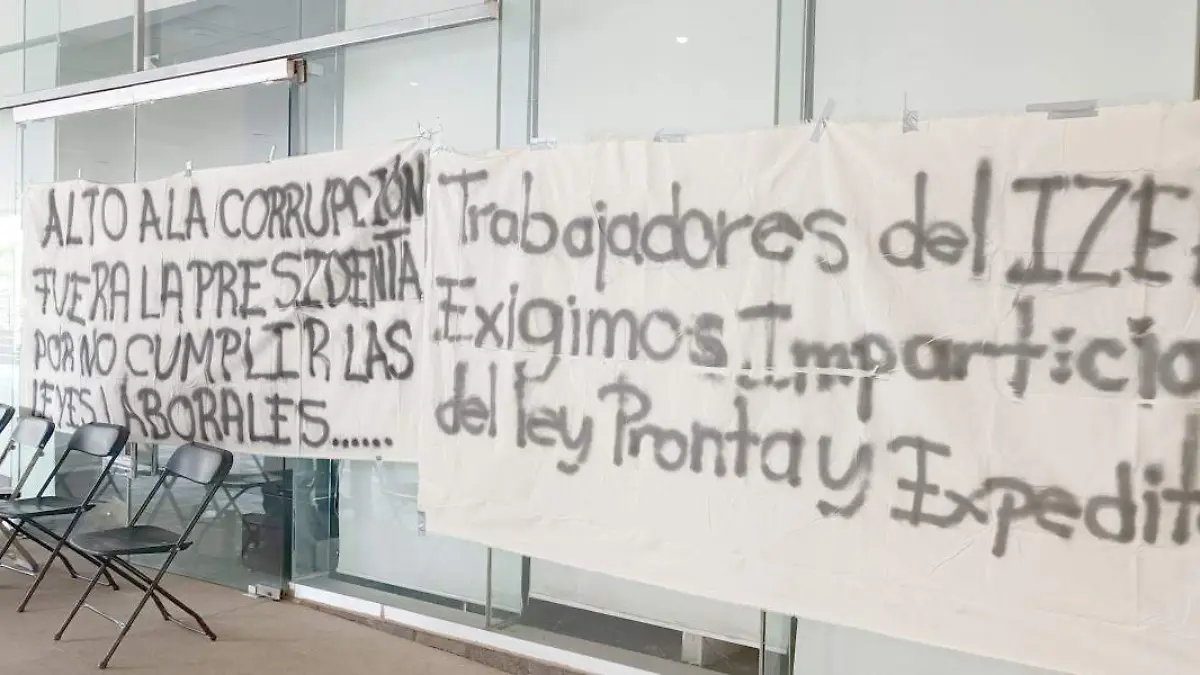 ALTO A LA CORRUPCIÓN
FUERA LA PRESIDENTA
POR NO CUMPLIR LAS
LEYES LABORALES......
Trabajadores del IZE
Exigimos Imparticia
del ley Pronta y Expedit